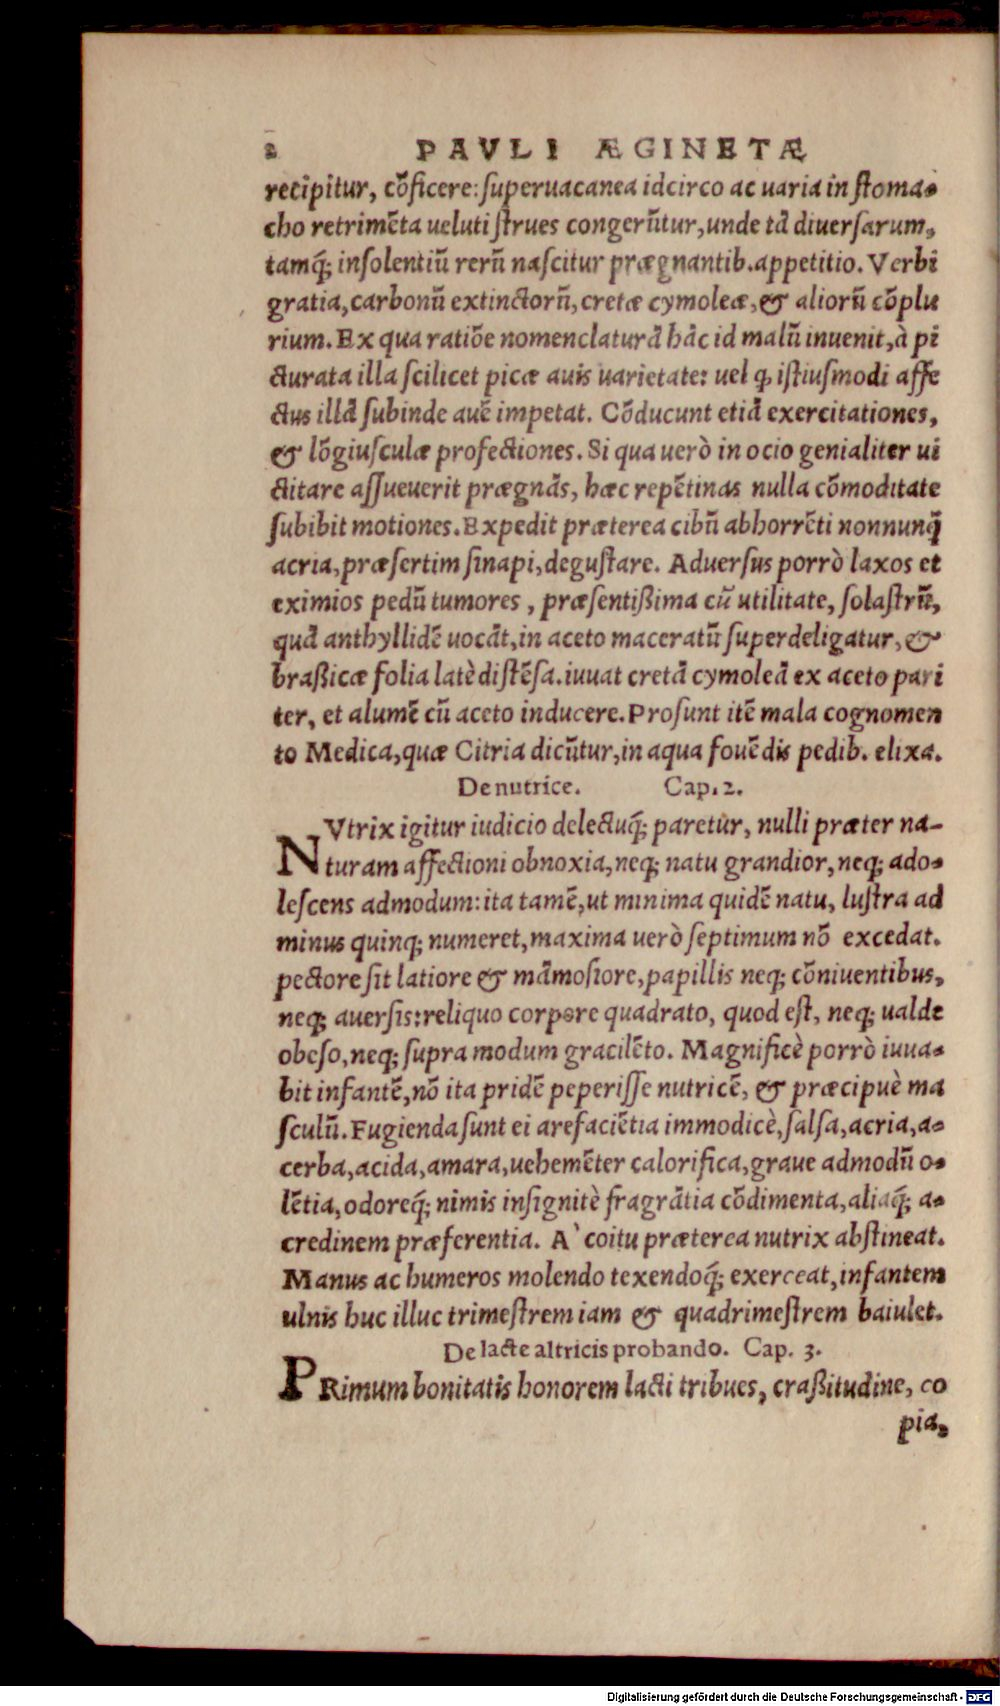 2 PAVLI ÆGINETÆ
recipitur, cõficere: superuacanea idcirco ac uaria in stoma-
cho retrimẽta ueluti strues congerũtur, unde tã diuersarum,
tamq́; insolentiũ rerũ nascitur prægnantib. appetitio. Verbi
gratia, carbonũ extinctorũ, cretæ cymoleæ, & aliorũ cõplu
rium. Ex qua ratiõe nomenclaturã hãc id malũ inuenit, à pi
cturata illa scilicet picæ auis uarietate: uel ꝙ istiusmodi affe
ctus illã subinde auẽ impetat. Cõducunt etiã exercitationes,
& lõgiusculæ profectiones. Si qua uerò in ocio genialiter ui
ctitare assueuerit prægnãs, hæc repẽtinas nulla cõmoditate
subibit motiones. Expedit præterea cibũ abhorrẽti nonnunq̃
acria, præsertim sinapi, degustare. Aduersus porrò laxos et
eximios pedũ tumores, præsentißima cũ utilitate, solastrũ,
quã anthyllidẽ uocãt, in aceto maceratũ superdeligatur, &
braßicæ folia latè distẽsa. iuuat cretã cymoleã ex aceto pari
ter, et alumẽ cũ aceto inducere. Prosunt itẽ mala cognomen
to Medica, quæ Citria dicũtur, in aqua fouẽdis pedib. elixa.
De nutrice. Cap. 2.
NVtrix igitur iudicio delectuq́; paretur, nulli præter na-
turam affectioni obnoxia, neq; natu grandior, neq; ado-
lescens admodum: ita tamẽ, ut minima quidẽ natu, lustra ad
minus quinq; numeret, maxima uerò septimum nõ excedat.
pectore sit latiore & mãmosiore, papillis neq; cõniuentibus,
neq; auersis: reliquo corpore quadrato, quod est, neq; ualde
obeso, neq; supra modum gracilẽto. Magnificè porrò iuua-
bit infantẽ, nõ ita pridẽ peperisse nutricẽ, & præcipuè ma
sculũ. Fugienda sunt ei arefaciẽtia immodicè, salsa, acria, a-
cerba, acida, amara, uehemẽter calorifica, graue admodũ o-
lẽtia, odoreq́; nimis insignitè fragrãtia cõdimenta, aliaq́; a-
credinem præferentia. A` coitu præterea nutrix abstineat.
Manus ac humeros molendo texendoq́; exerceat, infantem
ulnis huc illuc trimestrem iam & quadrimestrem baiulet.
De lacte altricis probando. Cap. 3.
PRimum bonitatis honorem lacti tribues, craßitudine, co
pia,
Digitalisierung gefördert durch die Deutsche Forschungsgemeinschaft - DFG